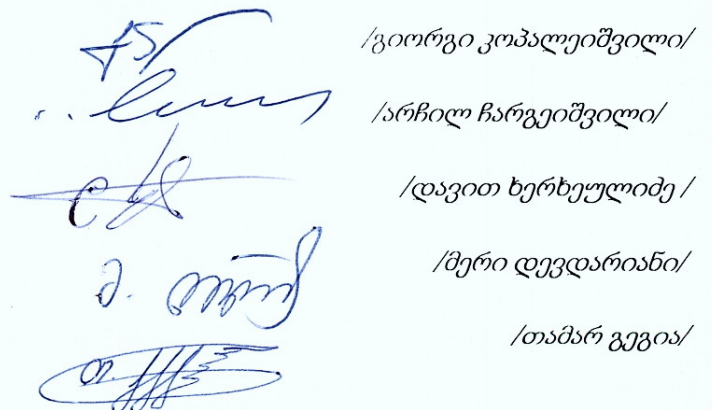 /გიორგი კოპალეიშვილი/
/არჩილ ჩარგეიშვილი/
/დავით ხერხეულიძე /
/მერი დევდარიანი/
/თამარ გეგია/